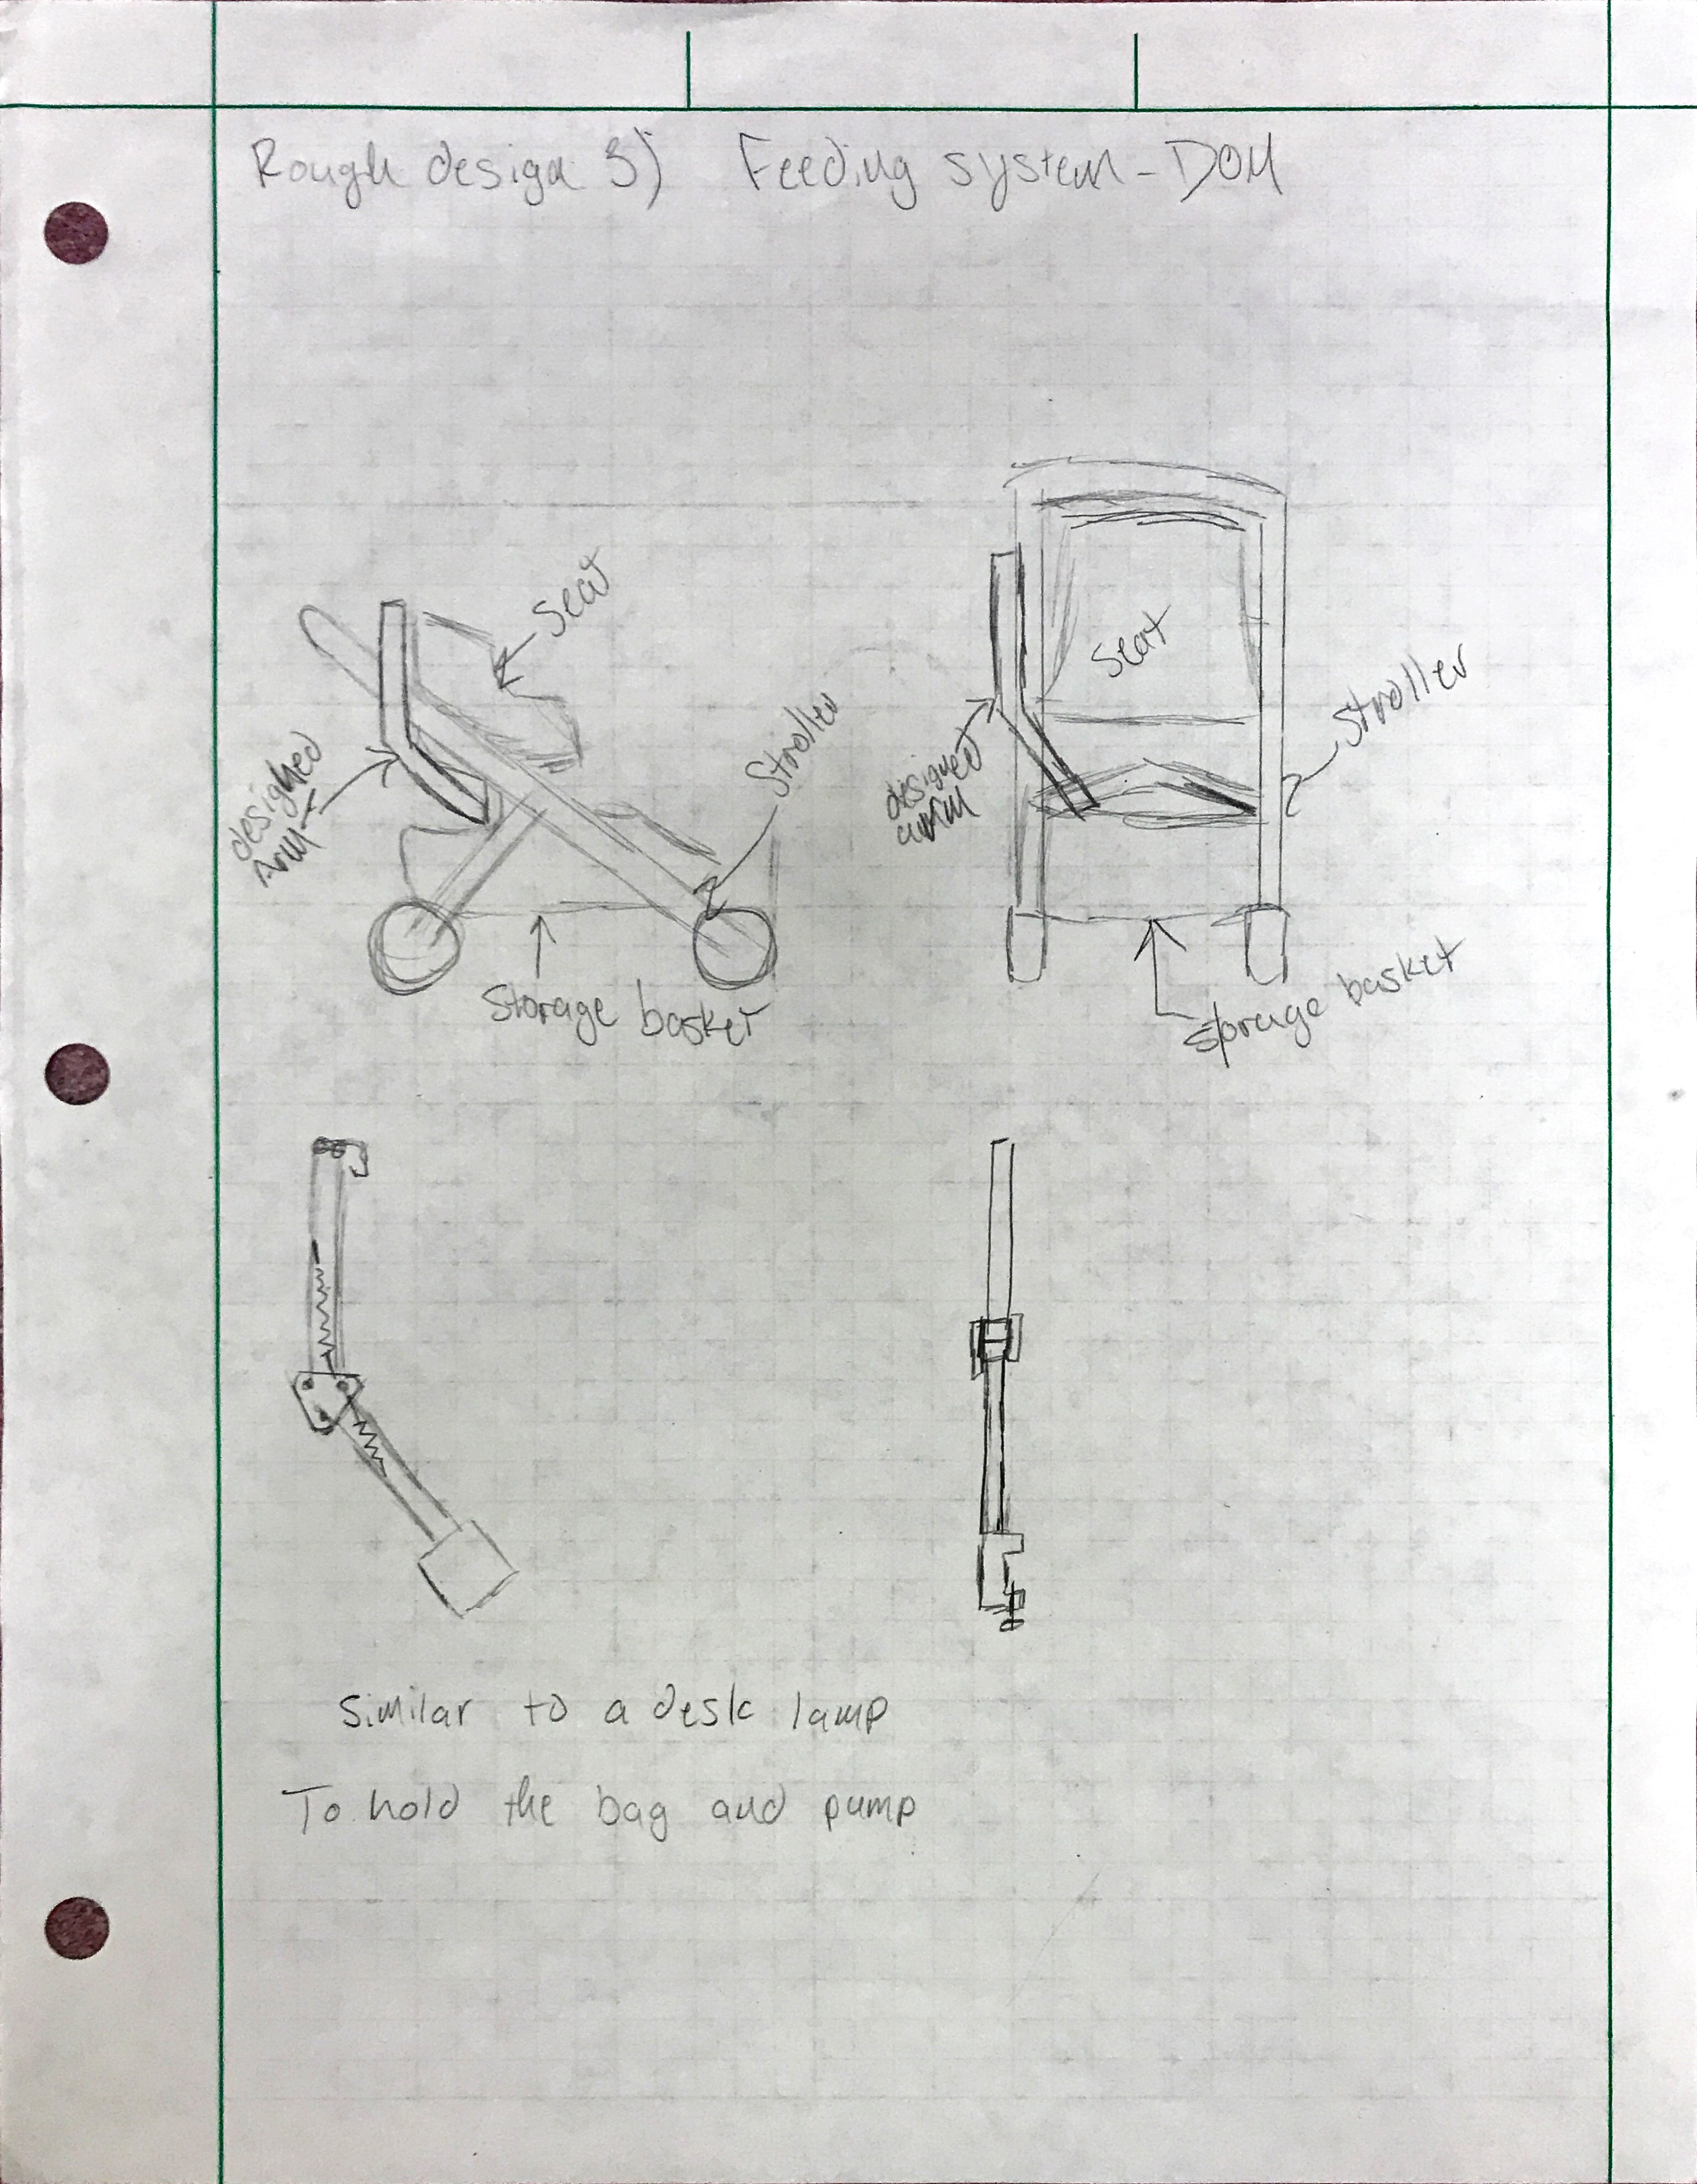 Rough design 3) Feeding system - DOM
Seat
designed
Arm
Stroller
Storage basket
Seat
designed
arm
Stroller
storage basket
Similar to a desk lamp
To hold the bag and pump